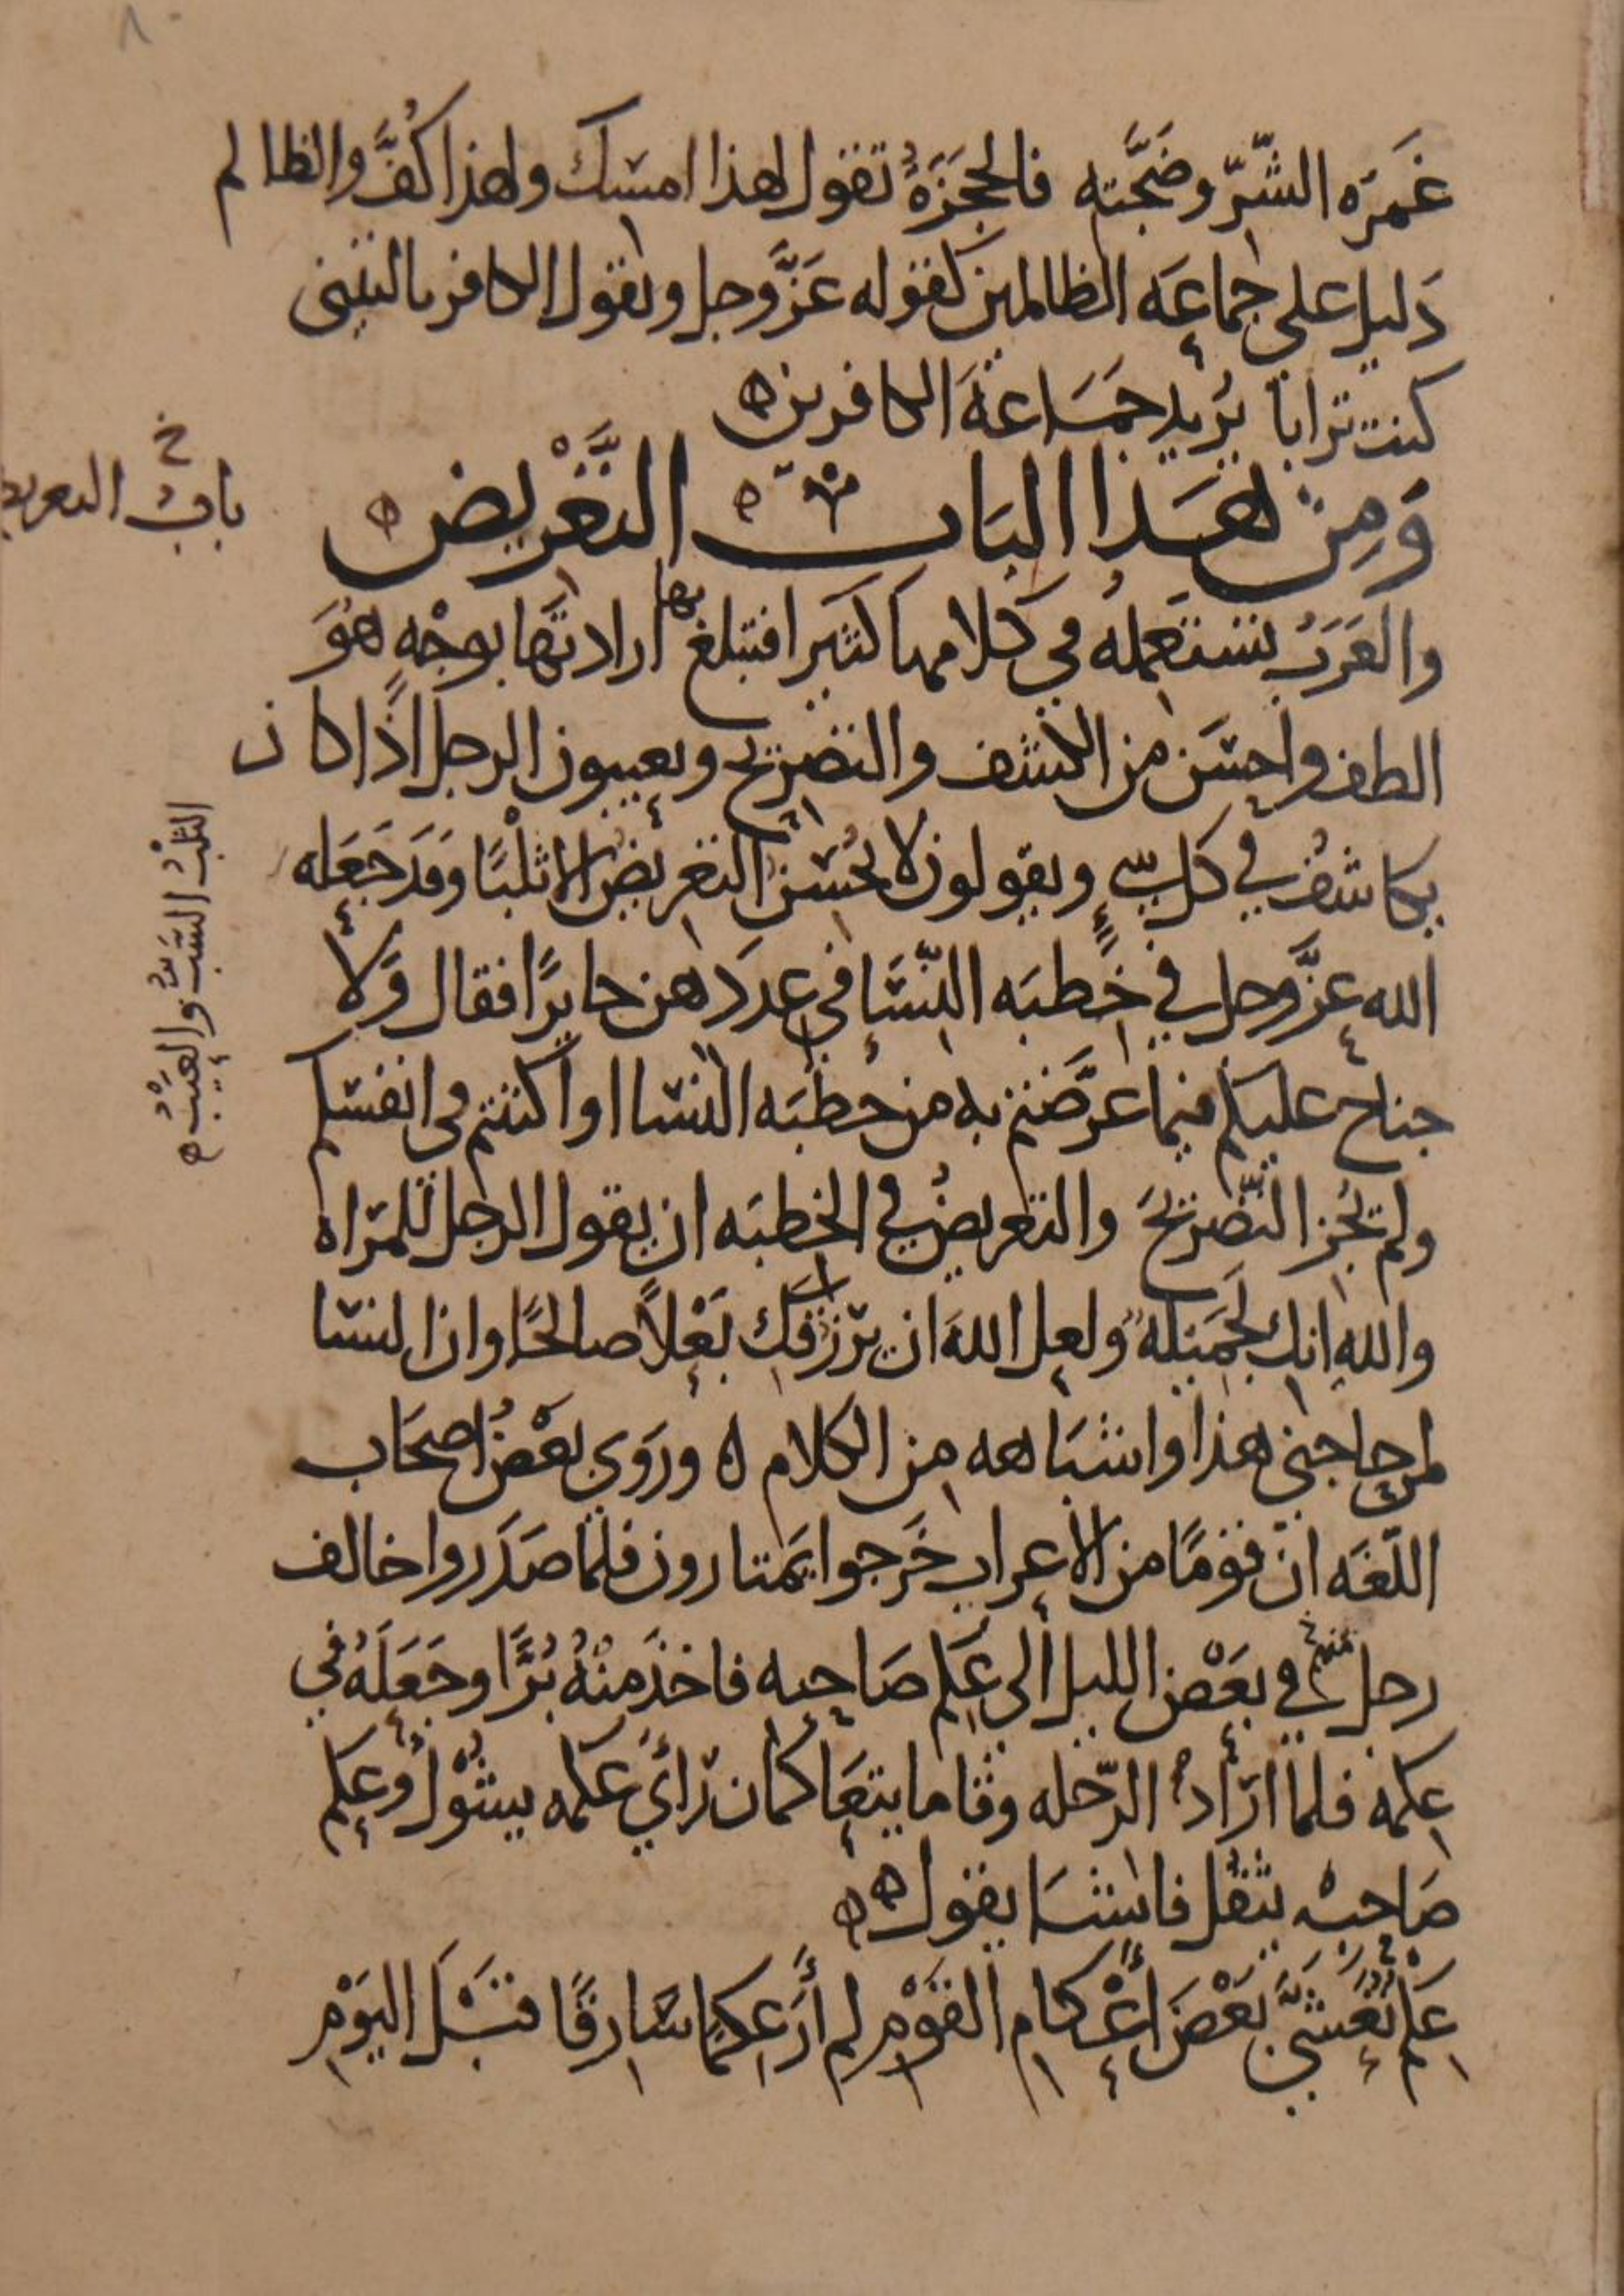 غَمرَه الشّرّ وضَجَّته فالحَجَزَةُ تقول لهذا امسك ولهذا كُفَّ والظالم
دَليل على جماعَه الظالمين كقوله عَزَّ وجل ويقول الكافر يا ليتني
كنت ترابا يُريد جمَاعةَ الكافرين
وَمِن هَذا البَاب التَّعْرِيض
باب التعريض خ
والعَرَبُ تستَعملهُ في كلامها كثيرا فتبلغ بها ارادتَها بوجْهٍ هُوَ
الطف واحسَن من الكشف والتصريح ويعيبون الرجل اذا كان
يكاشفُ في كل شي ويقولون لا يُحسن التعريضَ الا ثلْبًا وقَد جَعَله
الثلْبُ السَّبُّ والعَيْبُ
الله عزَّ وجل في خِطبَه النّسَا في عِدَدهن جايزًا فقال وَلا
جناح عليكم فيما عرَّضتم به من خِطبَه النسا او اكننتم في انفسكم
ولم يُجِز التّصريحَ والتعريضُ في الخطبَه ان يقول الرجل للمَراه
واللهِ انكِ لجَميله ولعل اللهَ ان يَرزقكِ بَعْلاً صالحًا وان النسا
لمن حاجتي هذا واشبَاهه من الكلام ه ورَوَى بعْضُ اصحَاب
اللّغَه انّ قومًا من الاعراب خَرجوا يَمتارون فلمّا صَدَروا خالف
رجل منهم في بعْض الليل الى عِكم صَاحِبه فاخذ منْهُ بُرًّا وجَعَلهُ في
عِكمه فلما ارَادُ الرّحله وقاما يتعَاكمان رَأَى عكمه يشُول وعِكم
صَاحِبه يثقل فانشَا يقول
عِكمٌ تَعَشَّى بَعْضَ أَعْكام القَوْم لم أَرَ عِكمًا سَارقًا قبْلَ اليَوْم